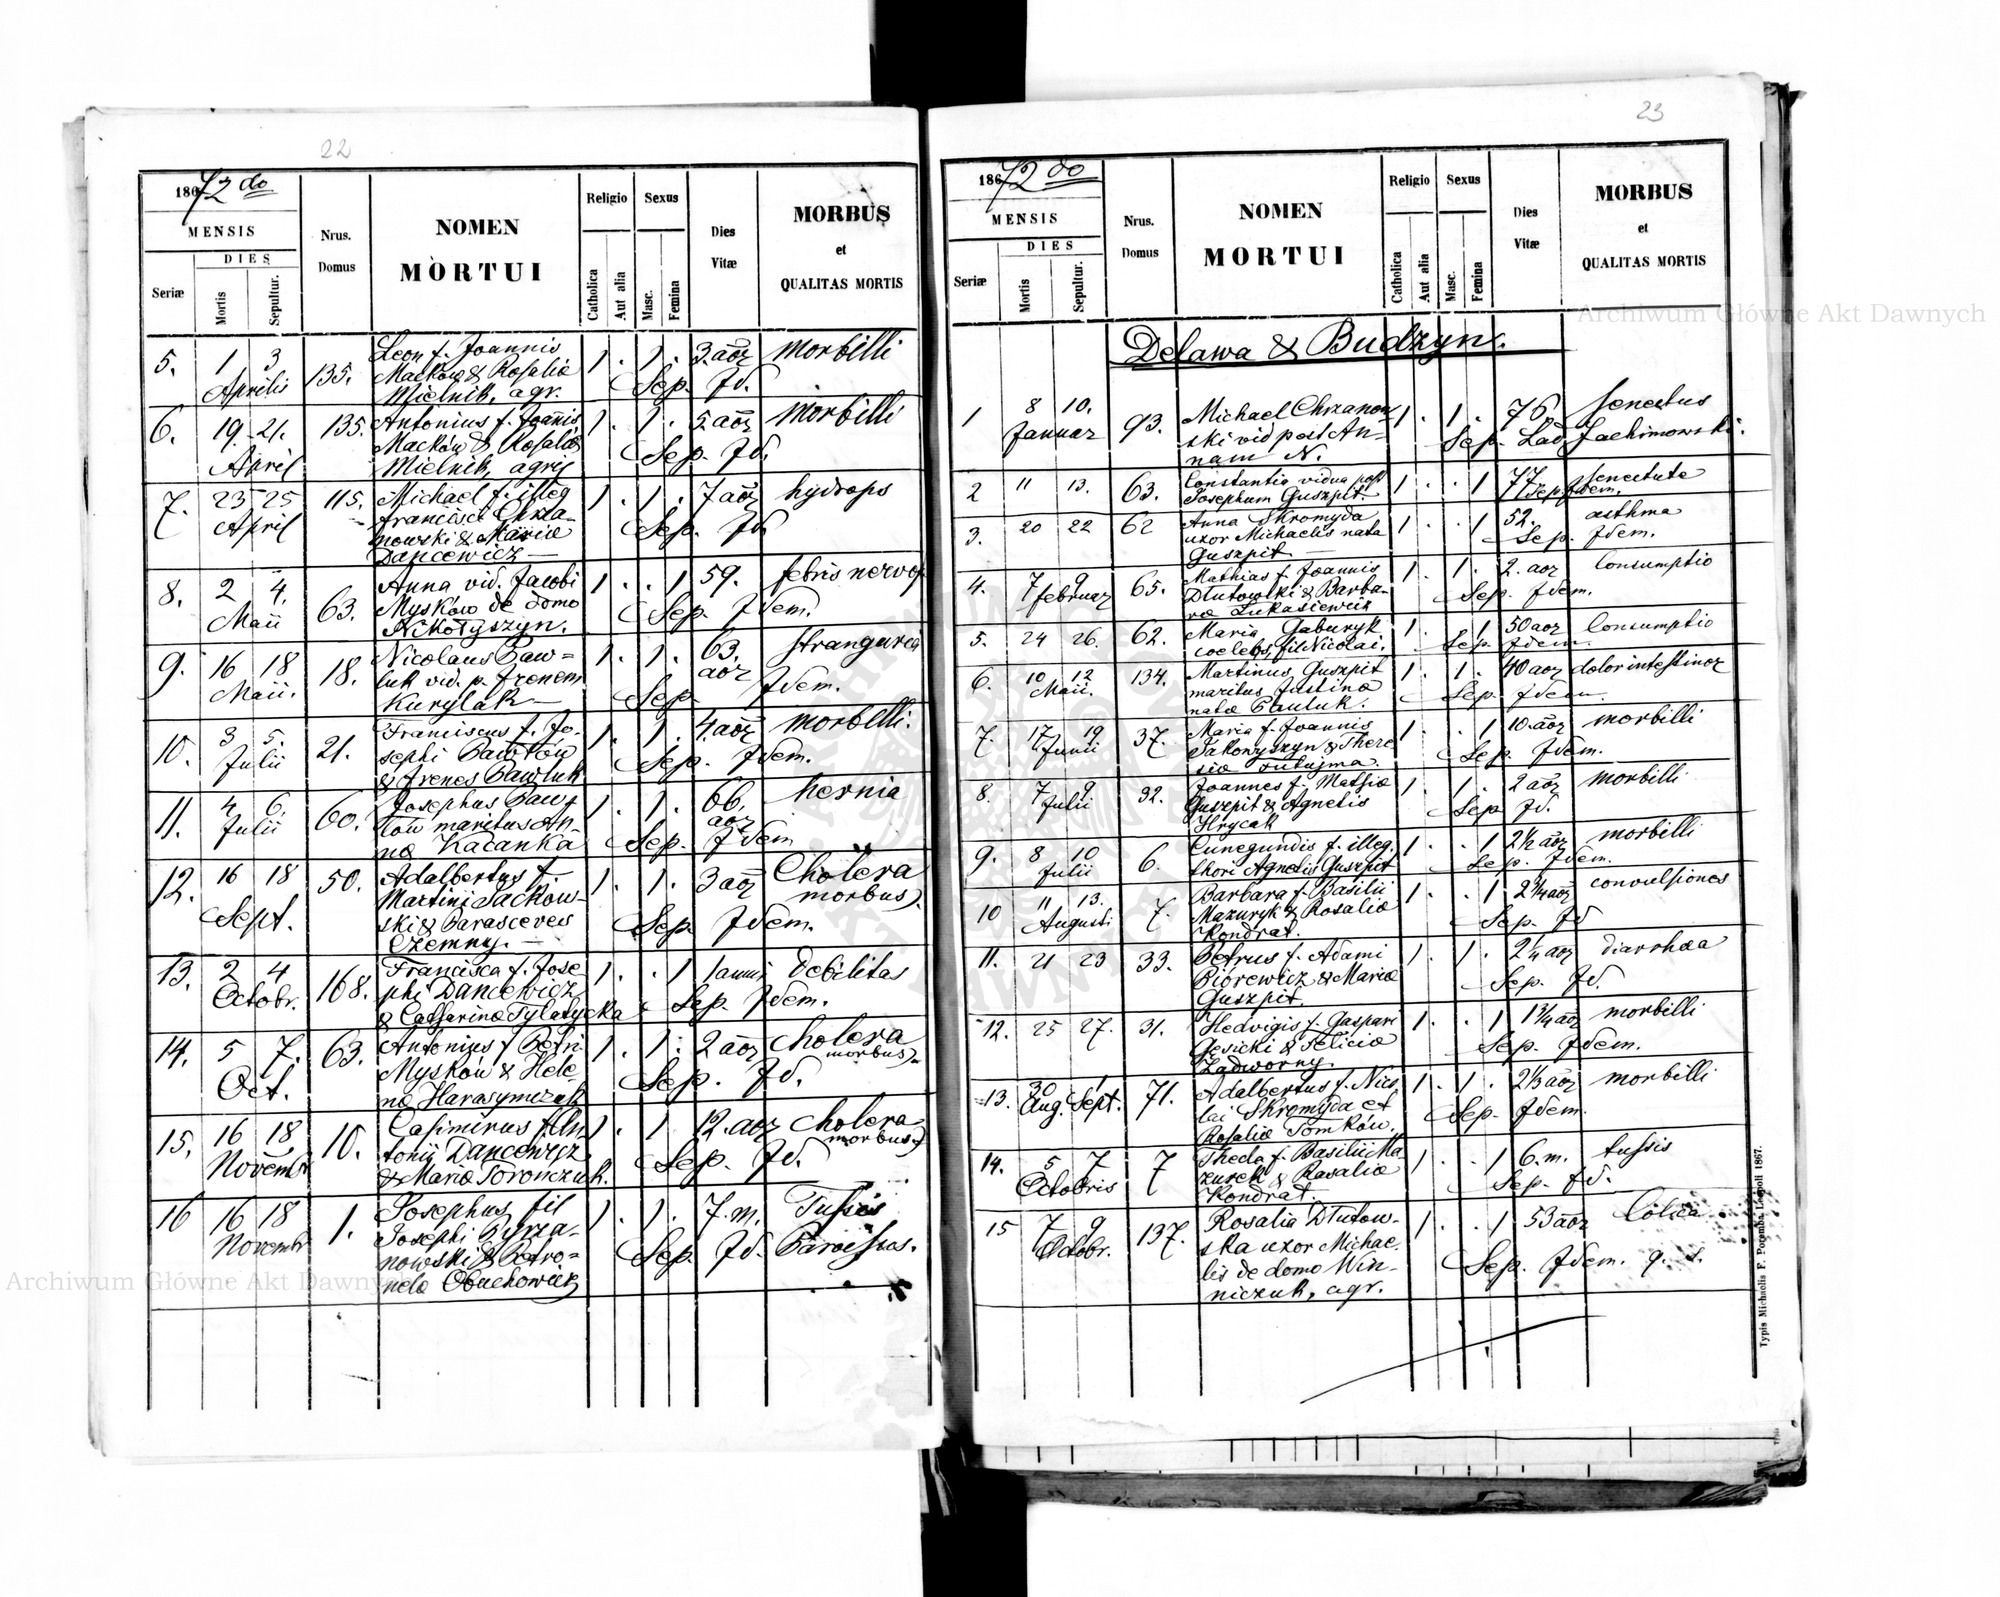 22
1872 do
MENSIS
DIES
Seriæ
Mortis
Sepultur.
Nrus.
Domus
NOMEN
MORTUI
Religio
Catholica
Aut alia
Sexus
Masc.
Femina
Dies
Vitæ
MORBUS
et
QUALITAS MORTIS
5. 1 3 135. Leon f. Joannis 1 . 1 . 3. aor morbilli
Aprilis Macków & Rosaliæ Sep. Jd.
Mielnik, agr.
6. 19 21. 135. Antonius f. Joanis 1 . 1 . 5. aor morbilli
April Macków & Rosaliæ Sep. Jd.
Mielnik, agric
7. 23 25 115. Michael f. illeg 1 . 1 . 7 aor hydrops
April Francisci Chrza- Sep. Jd
nowski & Mariæ
Dancewicz —
8. 2 4. 63. Anna vid. Jacobi 1 . . 1 59. febris nervos
Maii Mysków de domo Sep. Jdem.
Nikołyszyn.
9. 16 18 18. Nicolaus Paw= 1 . 1 . 63. stranguria
Maii. luk vid. p. Irenem aor
Kurylak — Sep. Jdem.
10. 3 5. 21. Franciscus f. Jo- 1 . 1 . 4. aor morbilli.
Julii sephi Pawłów Sep. Jdem.
& Irenes Pawluk
11. 4 6. 60. Josephus Paw- 1 . 1 . 66. hernia
Julii łów maritus An- aor
næ Kacanka Sep. Jdem
12. 16 18 50. Adalbertus f. 1 . 1 . 3 aor Cholera
Sept. Martini Sackow- morbus.
ski & Parascevew Sep. Jdem.
Czemny. —
13. 2 4 168. Francisca f. Jose 1 . . 1 1 anni Debilitas
Octobr. phi Dancewicz Sep. Jdem.
& Catharinæ Tylatycka
14. 5 7. 63. Antonius f Petri 1 . 1 . 2 aor cholera
Oct. Mysków & Hele- morbus
næ Harasymczuk Sep. Jd.
15. 16 18 10. Casimirus f. An 1 . 1 12. aor cholera
Novembr tonii Dancewicz morbus
& Mariæ Torończuk. Sep. Jd.
16 16 18 1. Josephus fil 1 . 1 . 7. m. Tussis
Novembr Josephi Chrza-
nowski & Petro= Sep. Jd.
nelæ Obuchowicz
23
1872 do
MENSIS
DIES
Seriæ
Mortis
Sepultur.
Nrus.
Domus
NOMEN
MORTUI
Religio
Catholica
Aut alia
Sexus
Masc.
Femina
Dies
Vitæ
MORBUS
et
QUALITAS MORTIS
Delawa & Budzyn.
1 8 10. 93. Michael Chrzanow 1 . 1 . 76. senectus
Januar ski vid post An- Sep. Lad Jachimowski.
nam N.
2 11 13. 63. Constantia vidua post 1 . . 1 77 senectute
Josephum Guszpit. Sep Jdem.
3. 20 22 62 Anna Skromyda 1 . . 1 52. asthma
uxor Michaelis nata Sep. Jdem.
Guszpit —
4. 7 9 65. Mathias f. Joannis 1 . 1 . 2. aor Consumptio
februar Dłutowski & Barba- Sep. Jdem.
ræ Łukasiewicz
5. 24 26. 62. Maria Gaburyk 1 . . 1 50 aor Consumptio
coelebs, fil Nicolai. Sep. Jdem.
6. 10 12 134. Martinus Guszpit 1 . 1 . 40 aor dolor intestinor
Maii. maritus Justinæ Sep. Jdem.
natæ Pauluk.
7. 17 19 37. Maria f. Joannis 1 . . 1 10. aor morbilli
Junii Jakowyszyn & There Sep. Jdem.
siæ
8. 7 9 92. Joannes f. Mathiæ 1 . 1 . 2 aor morbilli
Julii Guszpit & Agnetis Sep Jd.
Hrycak
9. 8 10 6. Cunegundis f. illeg. 1 . . 1 2½ aor morbilli
Julii thori Agnetis Guszpit Sep. Jdem.
10 11 13. 7. Barbara f. Basilii 1 . . 1 2¼ aor convulsiones
Augusti Mazuryk & Rosaliæ Sep. Jd
Kondrat.
11. 21 23 33. Petrus f. Adami 1 . 1 . 2¼ aor diarrhæa
Piorewicz & Mariæ Sep. Jd.
Guszpit.
12. 25 27. 31. Hedvigis f. Gaspari 1 . . 1 1¾ aor morbilli
Gesicki & Feliciæ Sep. Jdem.
Zadworny.
13. 30 1 71. Adalbertus f. Nico 1 . 1 . 2⅓ aor morbilli
Aug. Sept. lai Skromyda et Sep. Jdem.
Rosaliæ Tomków.
14. 5 7 7 Thecla f. Basilii Ma 1 . . 1 6. m. tussis
Octobris zurek & Rosaliæ Sep. Jd.
Kondrat.
15 7 9 137. Rosalia Dłutow- 1 . . 1 53 aor Colica
Octobr. ska uxor Michae-
lis de domo Win- Sep. Jdem.
niczuk, agr.
Typis Michaelis F. Poremba Leopoli 1867.
Archiwum Główne Akt Dawnych
Archiwum Główne Akt Dawnych